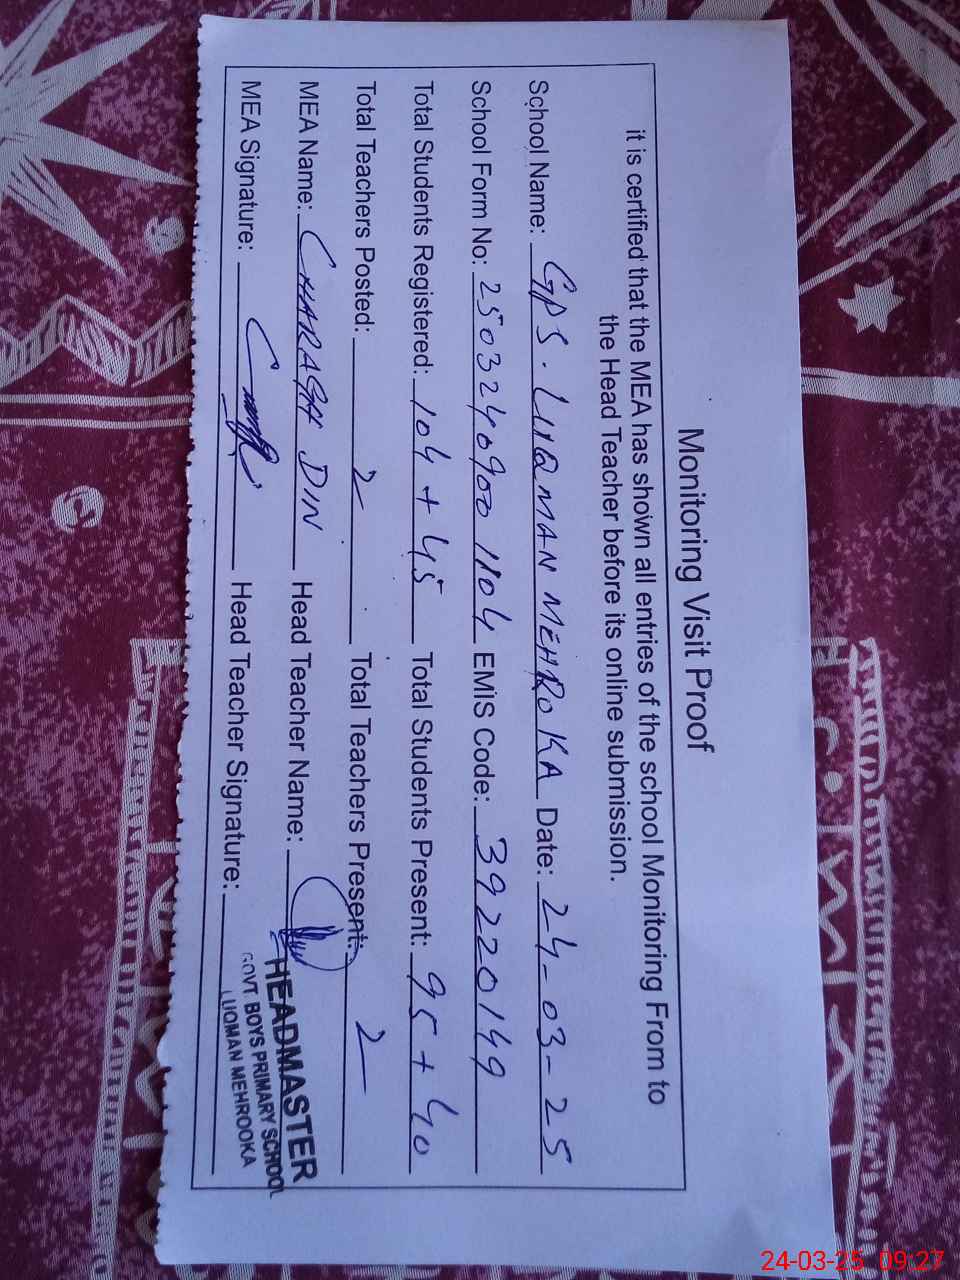 Monitoring Visit Proof
it is certified that the MEA has shown all entries of the school Monitoring From to
the Head Teacher before its online submission.
School Name: GPS. LUQMAN MEHROKA Date: 24-03-25
School Form No: 250324090011104 EMIS Code: 39220149
Total Students Registered: 104 + 45 Total Students Present: 95 + 40
Total Teachers Posted: 2 Total Teachers Present: 2
MEA Name: CHARAGH DIN Head Teacher Name:
MEA Signature: Head Teacher Signature:
HEADMASTER
GOVT. BOYS PRIMARY SCHOOL
LUQMAN MEHROOKA
24-03-25 09:27